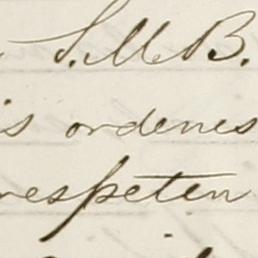 S.M.B.
is ordenes
respeten